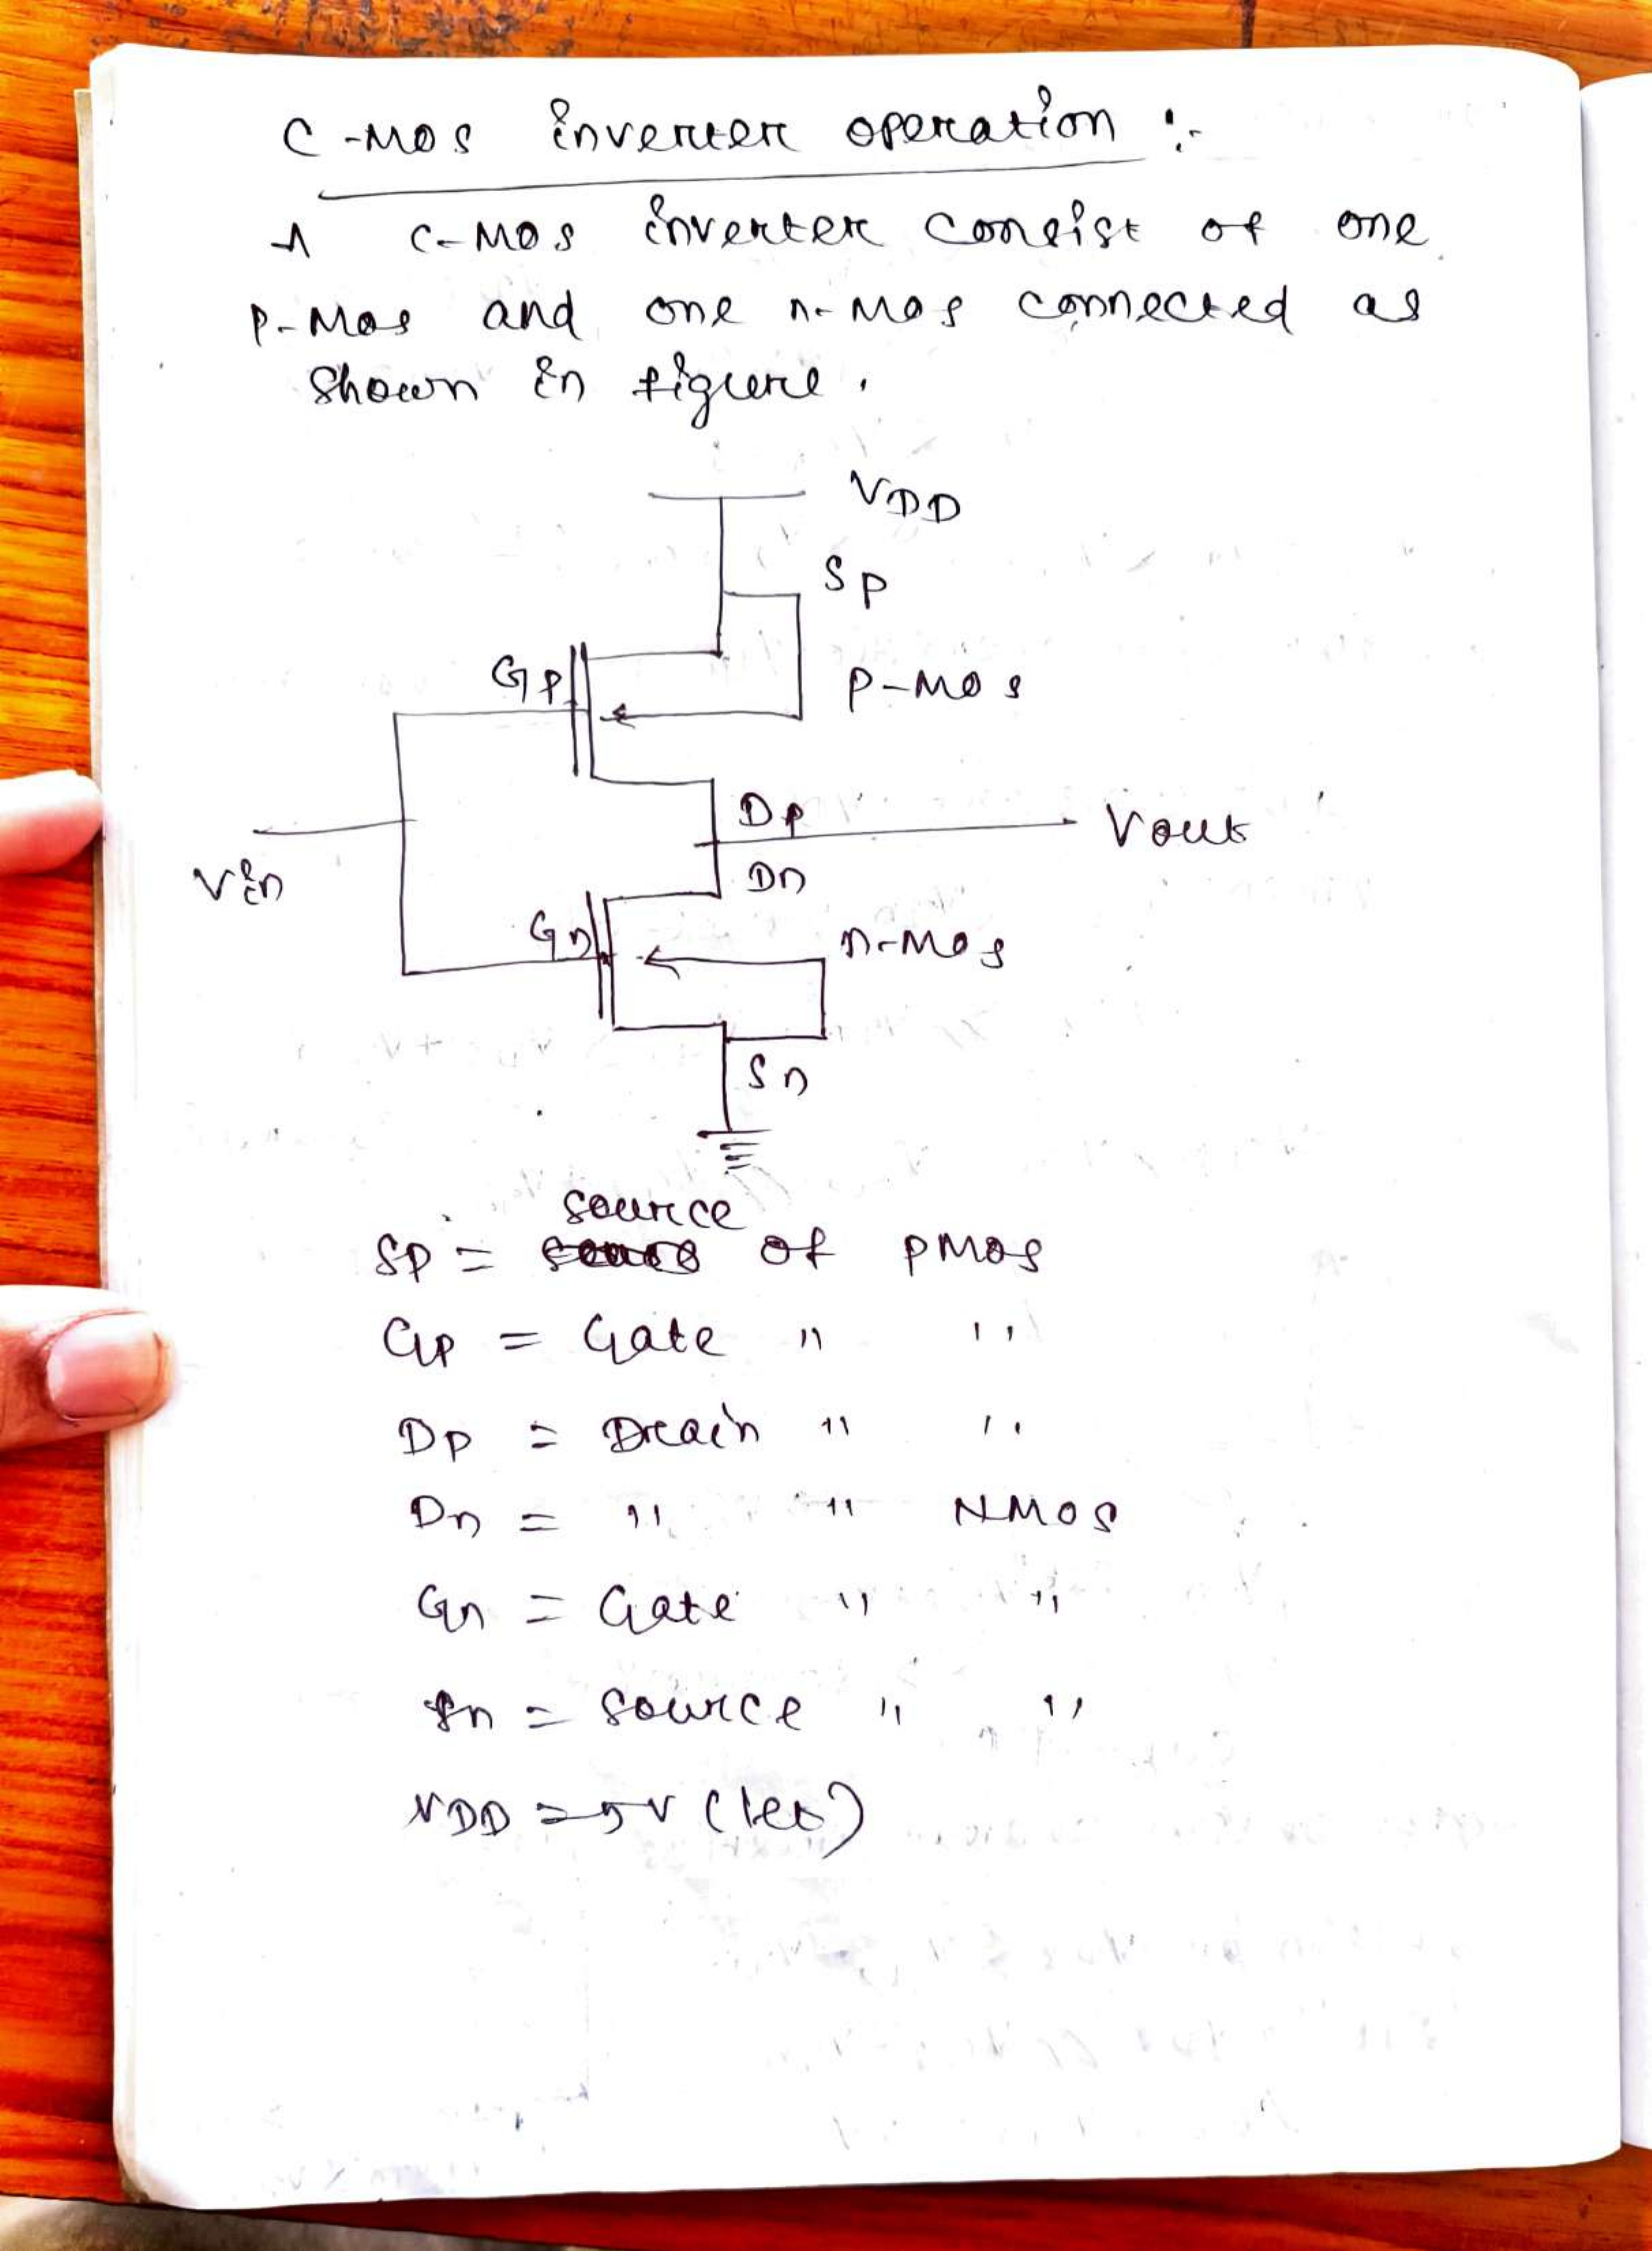 C-MOS inverter operation :-
A C-MOS inverter consist of one
P-Mos and one n-Mos connected as
Shown in figure.
VDD
Sp
Gp
P-Mos
Dp
Vout
Vin
Dn
Gn
n-Mos
Sn
source
Sp = of PMOS
Gp = Gate " "
Dp = Drain " "
Dn = " " NMOS
Gn = Gate " "
Sn = Source " "
VDD = 5V (let)